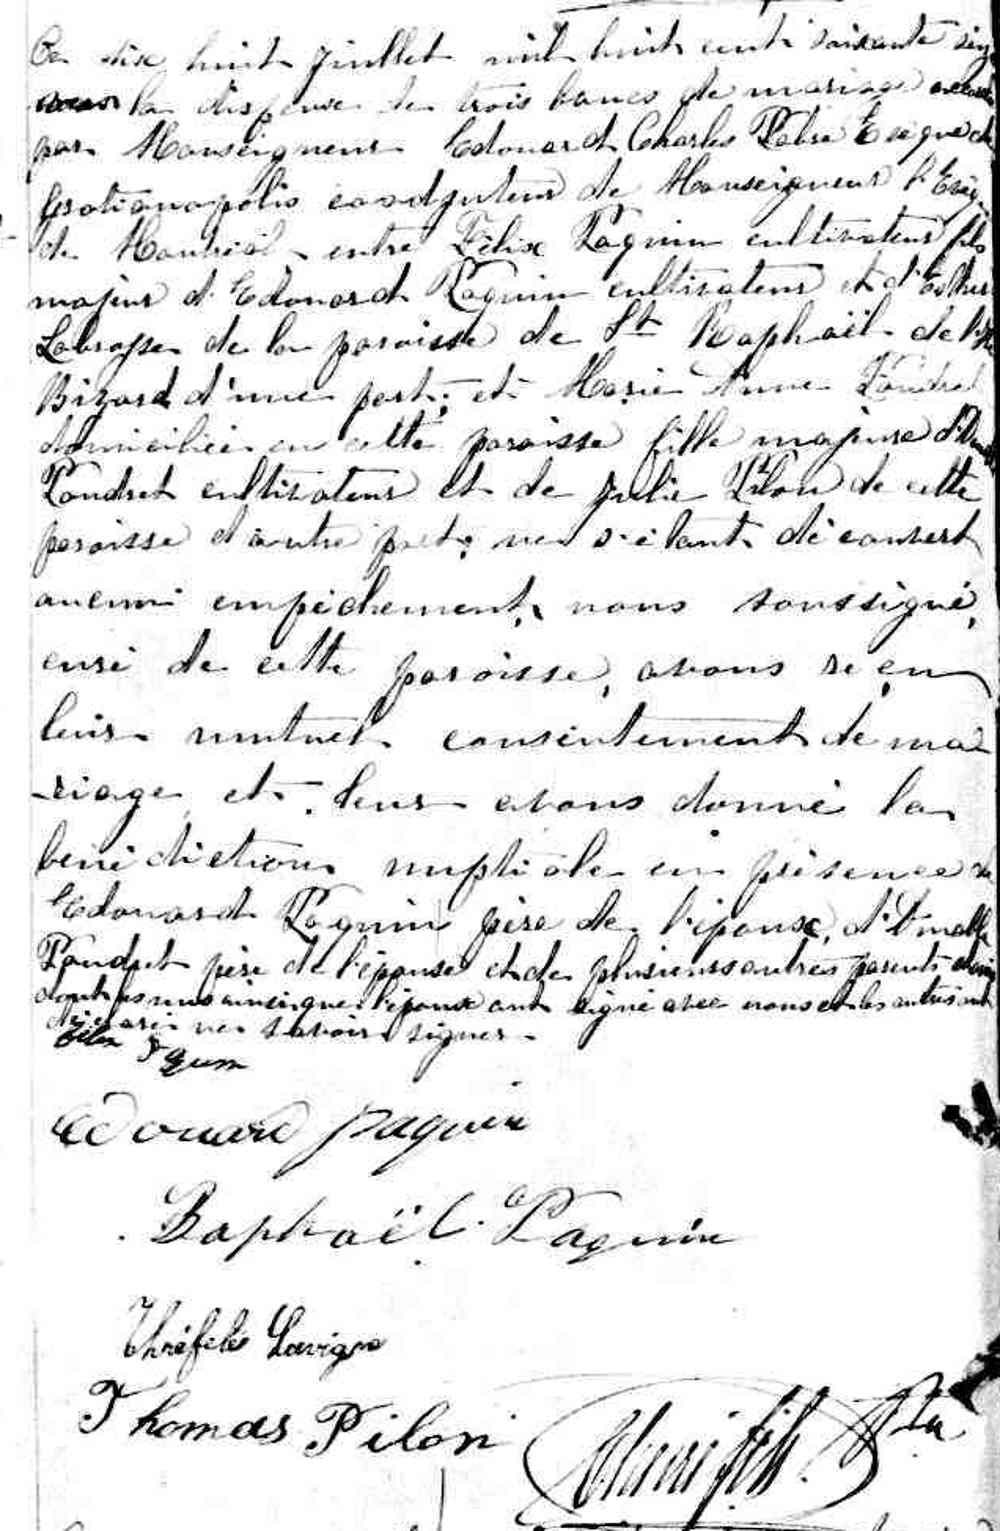 Ce dix huit Juillet mil huit cent soixante
la dispense de trois bancs de mariage
par Monseigneur Edouard Charles Fabre Evêque de
Gratianopolis coadjuteur de Monseigneur l'Evêq
de Montréal entre Félix Paquin cultivateur fils
majeur d'Edouard Paquin cultivateur et d'Esther
Labrosse de la paroisse de St Raphaël de l'Isle
Bizard d'une part; et Marie Anne Poudret
domiciliée en cette paroisse fille majeure
Poudret cultivateur et de Julie Pilon de cette
paroisse d'autre part; ne s'étant découvert
aucun empêchement, nous soussigné,
curé de cette paroisse, avons reçu
leur mutuel consentement de ma
-riage et leur avons donné la
bénédiction nuptiale en présence de
Edouard Paquin père de l'époux,
Poudret père de l'épouse et de plusieurs autres parents
dont les uns ainsi que l'époux ont signé avec nous et les autres ont
déclaré ne savoir signer.
Félix
Edouard paquin
Raphaël Paquin
Thréfflé Lavigne
Thomas Pilon
Ptre